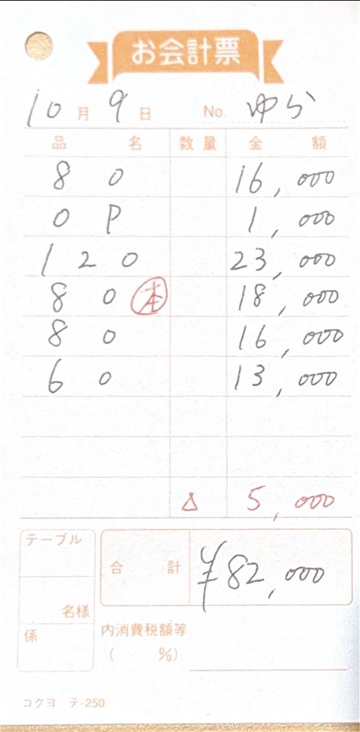 お会計票
10月9日 No. ゆら
品名 数量 金額
80 16,000
OP 1,000
120 23,000
80 本 18,000
80 16,000
60 13,000
△ 5,000
テーブル
名様
係
合計 ¥82,000
内消費税額等
( %)
コクヨ テ-250